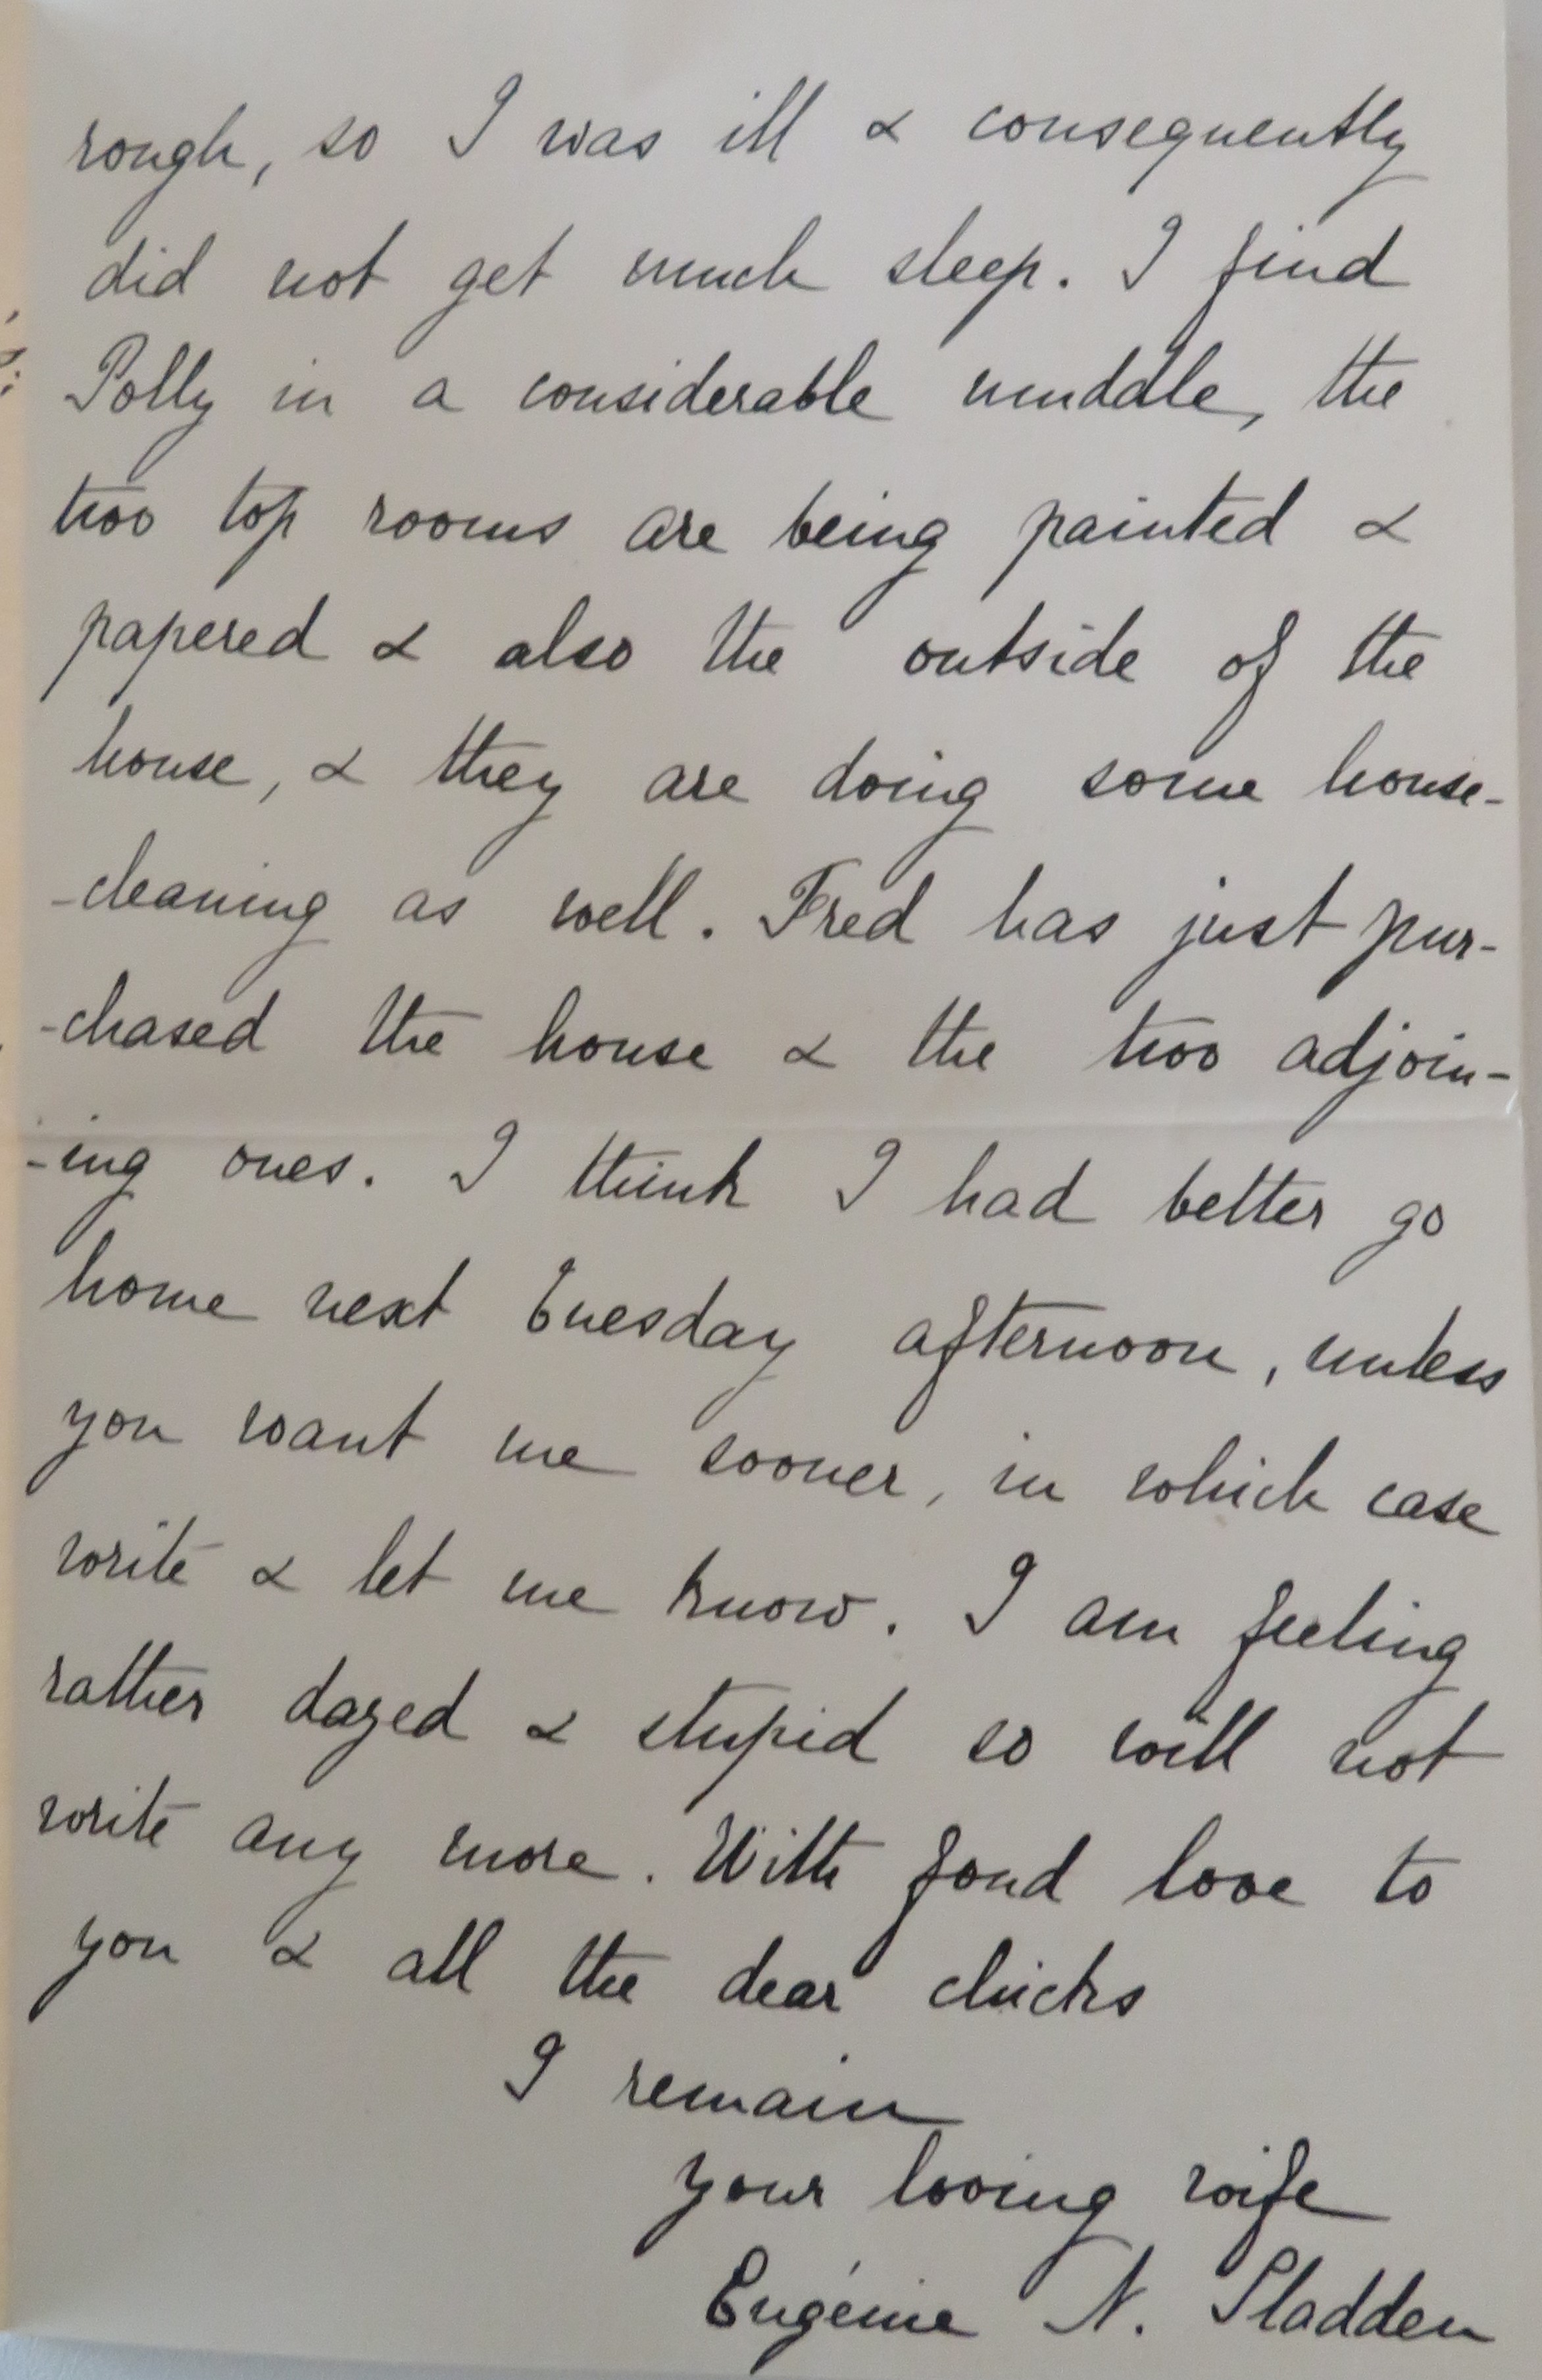 rough, so I was ill & consequently
did not get much sleep. I find
Polly in a considerable muddle, the
two top rooms are being painted &
papered & also the outside of the
house, & they are doing some house-
-cleaning as well. Fred has just pur-
-chased the house & the two adjoin-
-ing ones. I think I had better go
home next Tuesday afternoon, unless
you want me sooner, in which case
write & let me know. I am feeling
rather dazed & stupid so will not
write any more. With fond love to
you & all the dear chicks
I remain
your loving wife
Eugénie N. Sladden